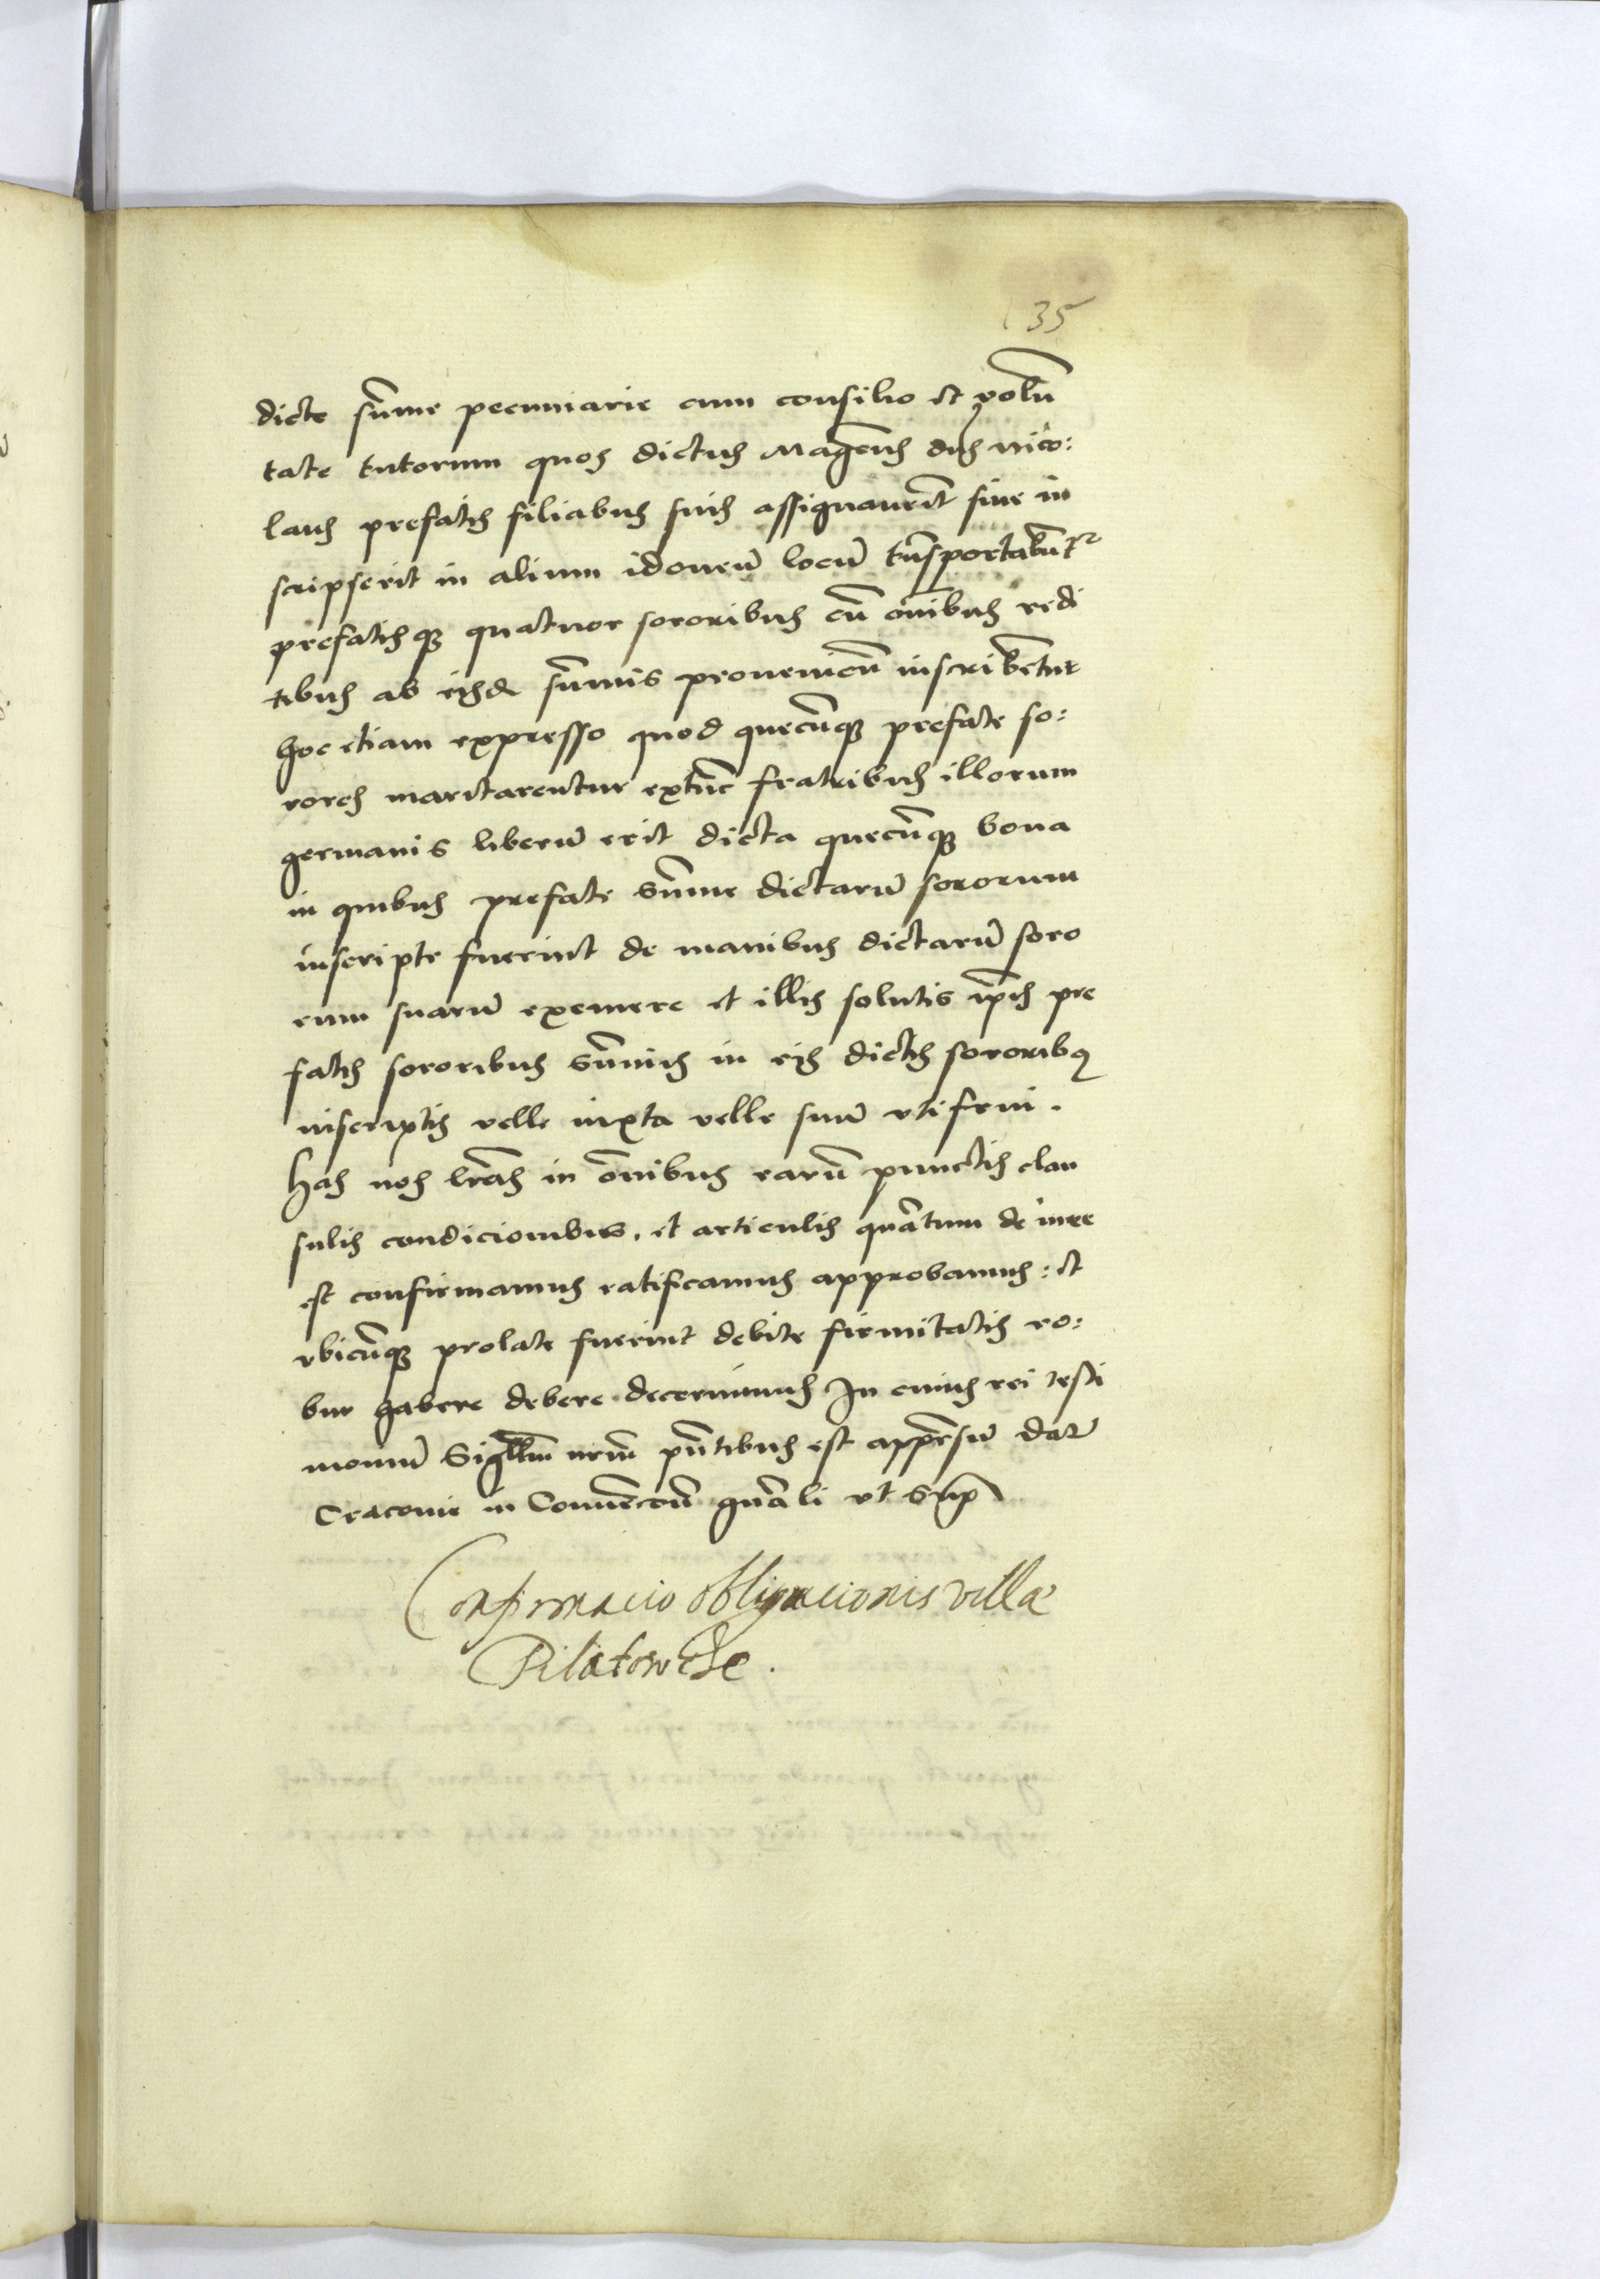 35
dicte su̅me pecuniarie cum consilio et volu̅
tate tutorum quos dictus Mag̅cus dn̅s Nico:
laus prefatis filiabus suis assignaverit sive in
scripserit in alium idoneu̅ locu̅ tra̅sportabu̅tr
prefatisq quatuor sororibus cu̅ om̅ibus redi
tibus ab eisd su̅mis provenien̅ inscribe̅tur
hoc etiam expresso quod quecu̅q prefate so:
rores maritarentur extu̅c fratribus illorum
germanis liberu̅ erit dicta quecu̅q bona
in quibus prefate su̅me dictaru̅ sororum
inscripte fuerint de manibus dictaru̅ soro
rum suaru̅ exemere et illis solutis ip̅is pre
fatis sororibus su̅mis in eis dictis sororibꝫ
inscriptis velle iuxta velle suu̅ utifrui.
Has nos lr̅as in om̅ibus earu̅ punctis clau
sulis condicionibus, et articulis qua̅tum de iure
est confirmamus ratificamus approbamus: et
vbicu̅q prolate fuerint debite firmitatis ro:
bur habere debere decernimus In cuius rei testi
moniu̅ Sigillu̅ nr̅m pn̅tibus est appre̅su̅ Dat̅
Cracovie in Conve̅cio̅e gn̅ali vt Sup̅
Confirmacio obligacionis villæ
Pilatowcze.